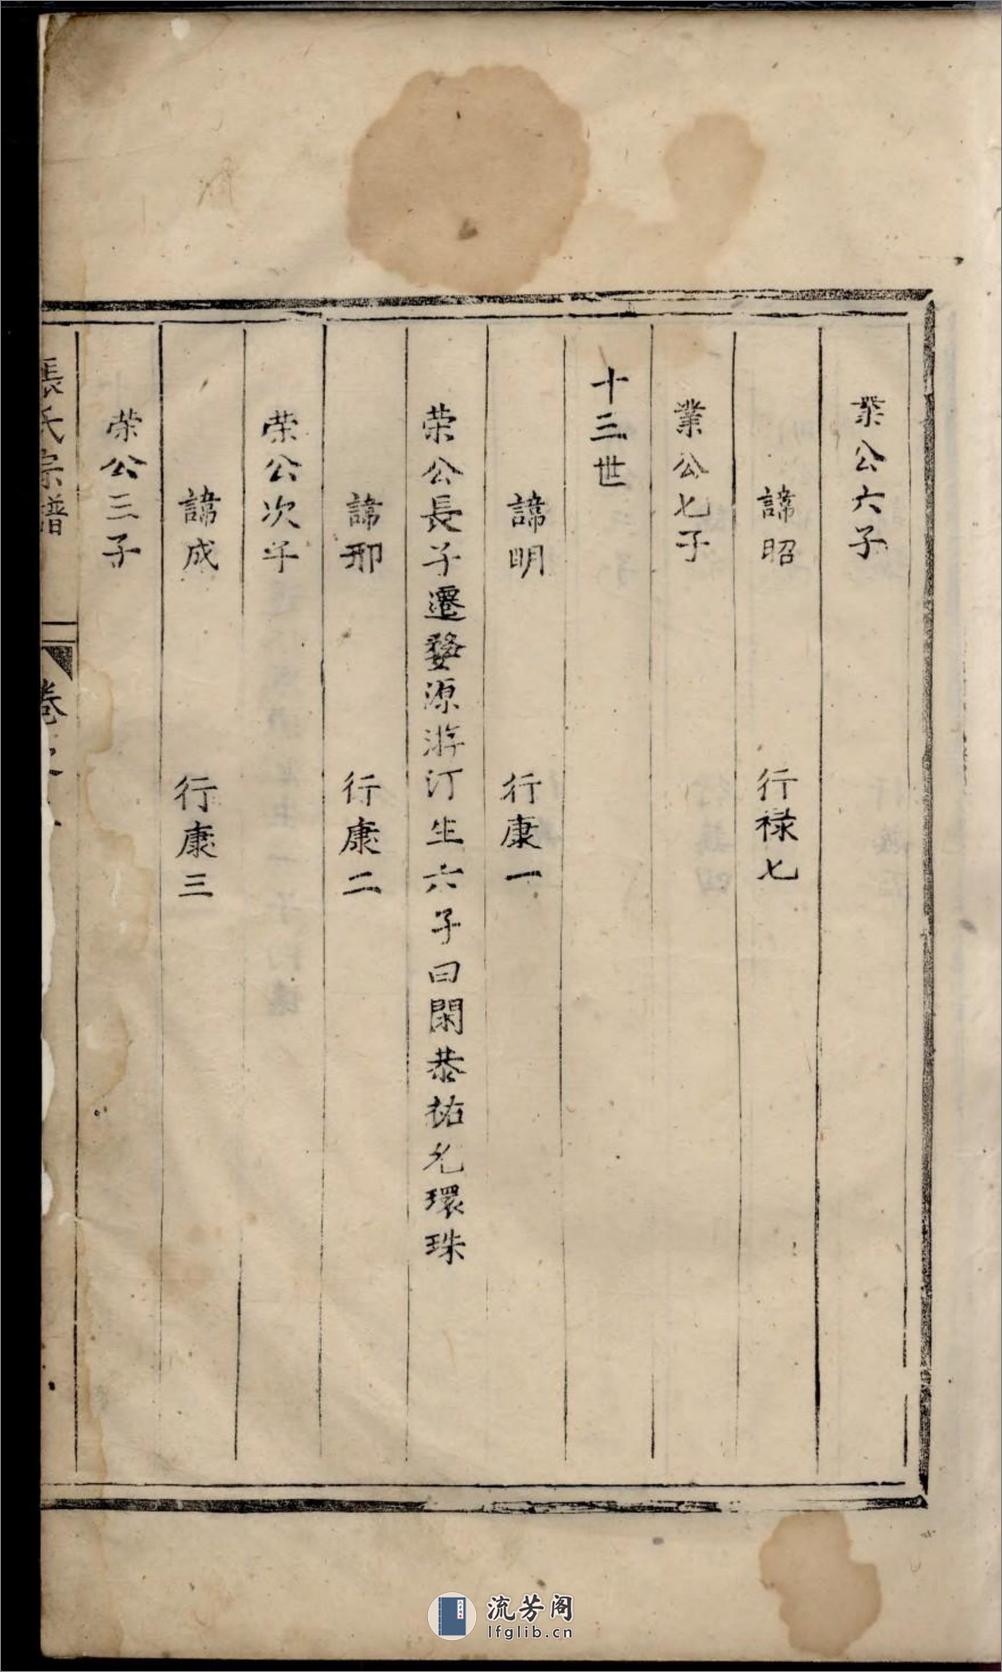 業公六子
諱昭 行禄七
業公七子
十三世
諱明 行康一
荣公長子遷婺源游汀生六子曰閑恭祐允環珠
諱邢 行康二
荣公次子
諱成 行康三
荣公三子
張氏宗譜 卷之
流芳阁
lfglib.cn